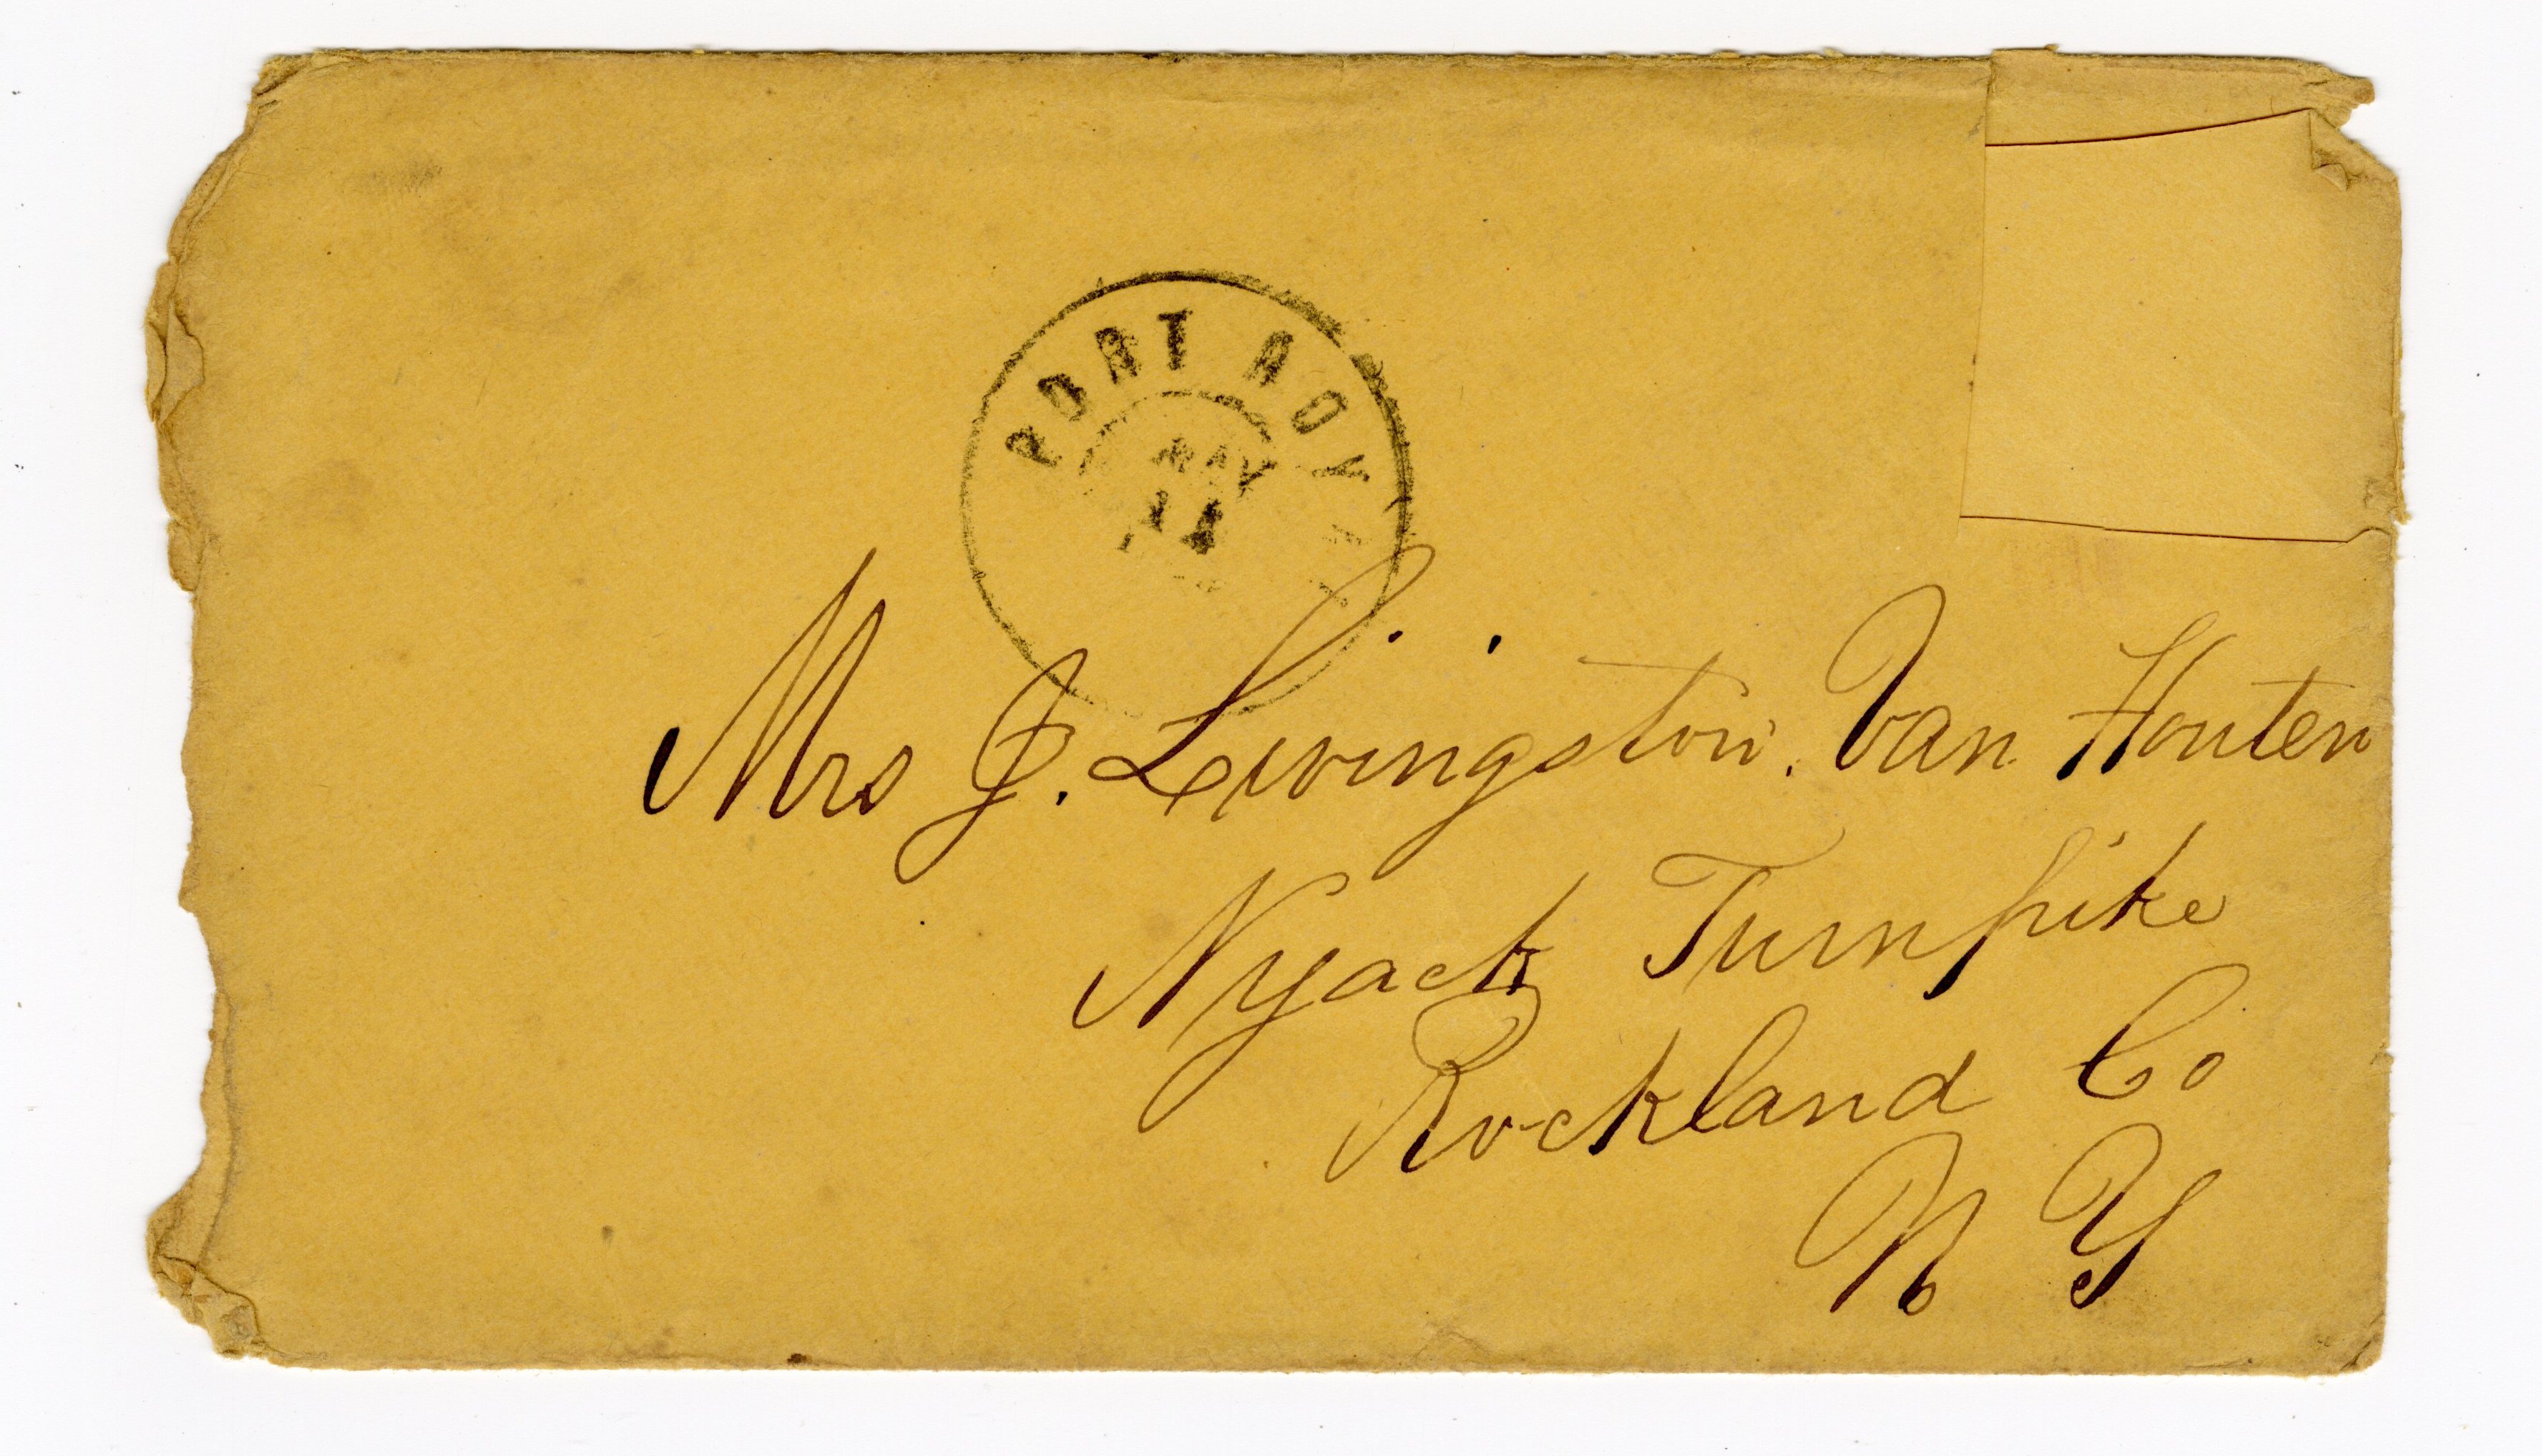 PORT ROYAL
MAY
Mrs J. Livingston. Van Houten
Nyack Turnpike
Rockland Co
N Y